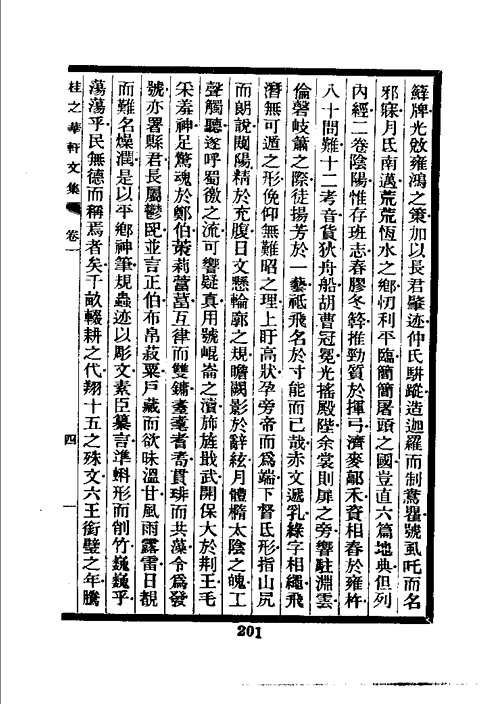 鮮牌光敓雍鴻之策加以長君肇迹仲氏駢蹤造迦羅而制鴦瞿號虱吒而名
邪寐月氏南邁荒荒恆水之鄉忉利平臨簡簡屠頭之國豈直六篇地典但列
內經二卷陰陽惟存班志春膠冬簳推勁質於揮弓濟麥鄗禾資相舂於雍杵
八十問難十二考音貨狄舟船胡曹冠冕光搖殿陛余裳則扉之旁響駐淵雲
倫磬岐簫之際徒揚芳於一藝祗飛名於寸能而已哉赤文遞乳綠字相繩飛
潛無可遁之形俛仰無難昭之理上盱高狀孕旁帝而爲端下督氐形指山尻
而朗說闕陽精於充腹日文懸輪廓之規瞻闕影於辭紘月體橢太陰之魄工
聲觸聽遂呼蜀徼之流可響疑真用號崐崙之瀆旆旌戢武開保大於荆王毛
采羞神足驚魂於鄭伯茉莉䔰葍互律而雙鏽耋耄者耇貫琲而共藻令爲發
號亦署縣君長屬鬱配並言正伯布帛菽粟戶藏而欲昧溫甘風雨露雷日覩
而難名燥潤是以平鄉神筆規蟲迹以彫文素臣纂言準蝌形而削竹巍巍乎
蕩蕩乎民無德而稱焉者矣千畝輟耕之代翔十五之殊文六王銜璧之年騰
桂之華軒文集 卷一 四
201